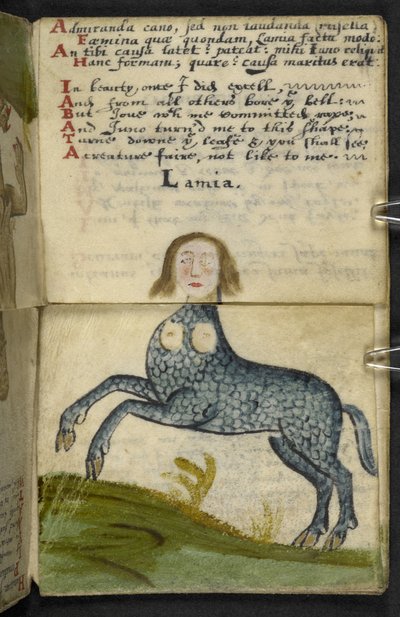 Admiranda cano, sed non laudanda puella
Fæmina quæ quondam, Lamia facta modo:
An tibi causa latet? pateat: mihi Iuno reliquit
Hanc formam; quare? causa maritus erat.
In beauty, once I did excell,
And from all others bore yͤ bell:
But Joue wth me committed rape,
And Juno turn'd me to this shape,
Turne downe yͤ leafe & you shall see
A creature faire, not like to me.
Lamia.